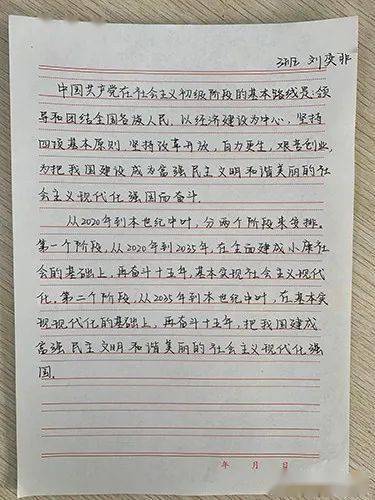 3班 刘奕非
中国共产党在社会主义初级阶段的基本路线是:领
导和团结全国各族人民,以经济建设为中心,坚持
四项基本原则,坚持改革开放,自力更生,艰苦创业,
为把我国建设成为富强民主文明和谐美丽的社
会主义现代化强国而奋斗.
从2020年到本世纪中叶,分两个阶段来安排.
第一个阶段,从2020年到2035年,在全面建成小康社
会的基础上,再奋斗十五年,基本实现社会主义现代
化.第二个阶段,从2035年到本世纪中叶,在基本实
现现代化的基础上,再奋斗十五年,把我国建成
富强民主文明和谐美丽的社会主义现代化强
国.
年 月 日